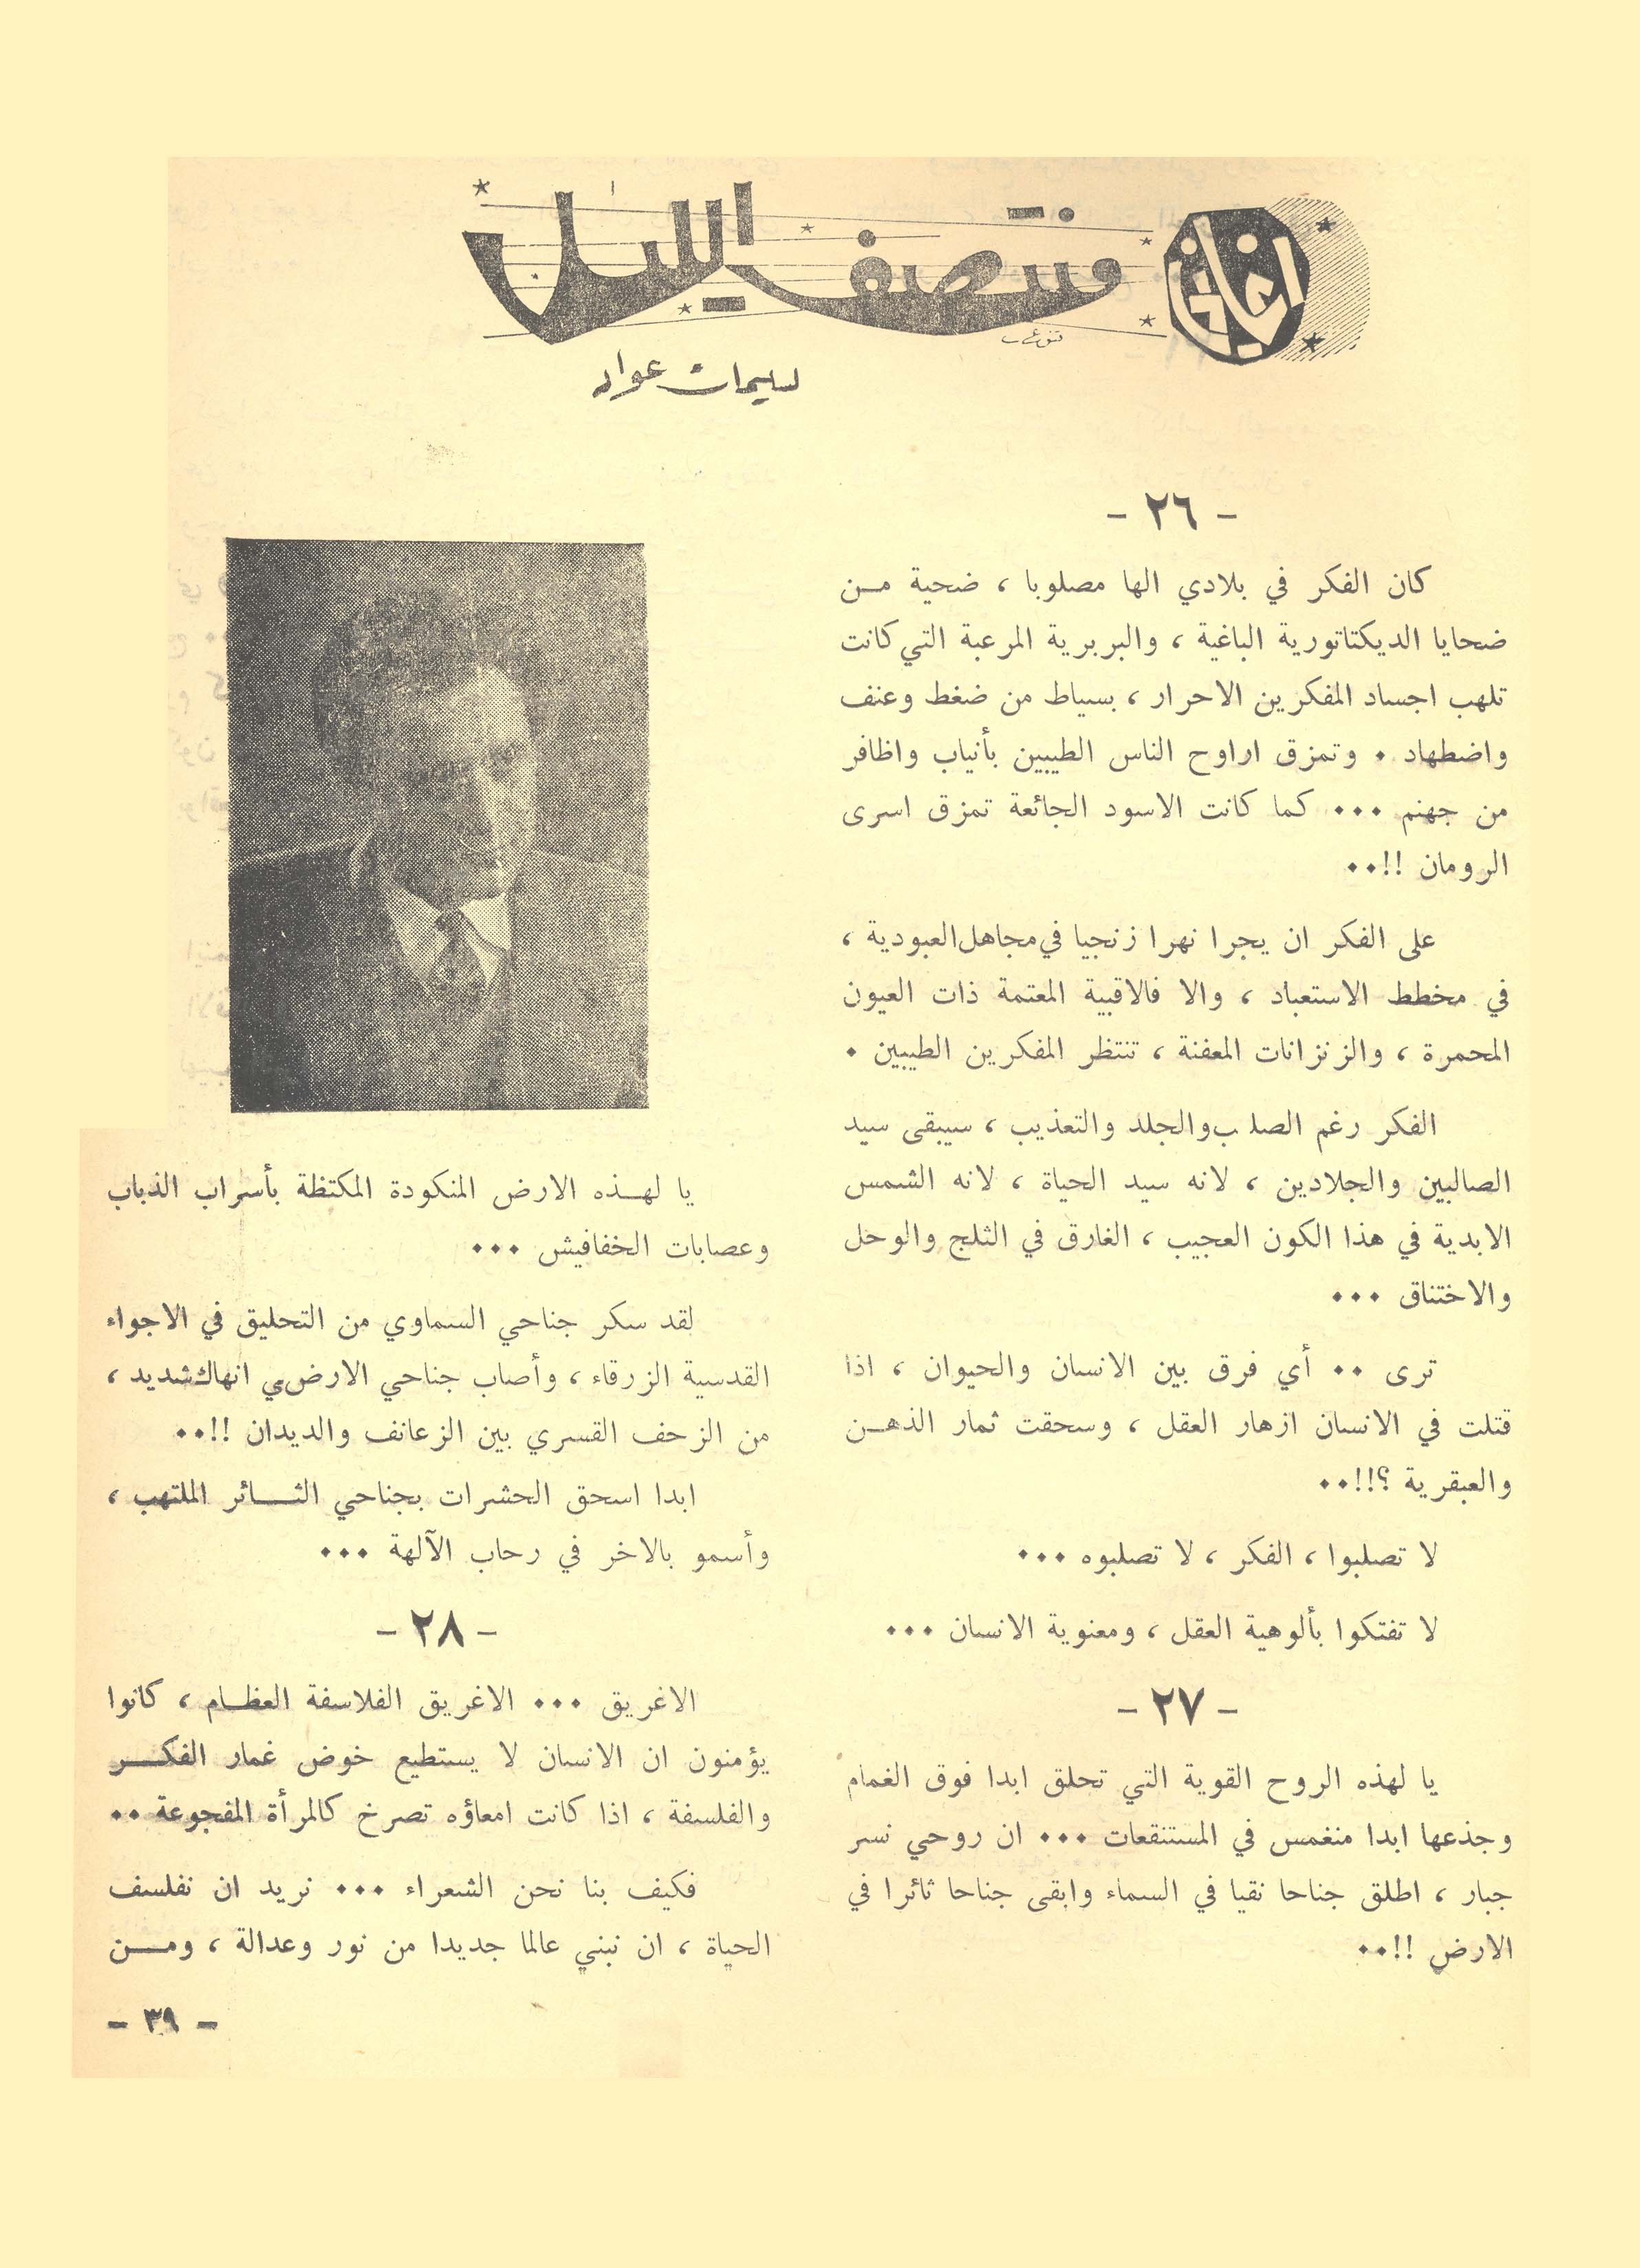 اغاني منتصف الليل
سليمان عواد
- ٢٦ -
كان الفكر في بلادي الها مصلوبا ، ضحية مـن
ضحايا الديكتاتورية الباغية ، والبربرية المرعبة التي كانت
تلهب اجساد المفكرين الاحرار ، بسياط من ضغط وعنف
واضطهاد . وتمزق اراوح الناس الطيبين بأنياب واظافر
من جهنم ... كما كانت الاسود الجائعة تمزق اسرى
الرومان !!..
على الفكر ان يجرا نهرا زنجيا في مجاهل العبودية ،
في مخطط الاستعباد ، والا فالاقبية المعتمة ذات العيون
المحمرة ، والزنزانات المعفنة ، تنتظر المفكرين الطيبين .
الفكر رغم الصلب والجلد والتعذيب ، سيبقى سيد
الصالبين والجلادين ، لانه سيد الحياة ، لانه الشمس
الابدية في هذا الكون العجيب ، الغارق في الثلج والوحل
والاختناق ...
ترى .. أي فرق بين الانسان والحيوان ، اذا
قتلت في الانسان ازهار العقل ، وسحقت ثمار الذهـن
والعبقرية ؟!!..
لا تصلبوا ، الفكر ، لا تصلبوه ...
لا تفتكوا بألوهية العقل ، ومعنوية الانسان ...
- ٢٧ -
يا لهذه الروح القوية التي تحلق ابدا فوق الغمام
وجذعها ابدا منغمس في المستنقعات ... ان روحي نسر
جبار ، اطلق جناحا نقيا في السماء وابقى جناحا ثائرا في
الارض !!..
يا لهـذه الارض المنكودة المكتظة بأسراب الذباب
وعصابات الخفافيش ...
لقد سكر جناحي السماوي من التحليق في الاجواء
القدسية الزرقاء ، وأصاب جناحي الارضي انهاك شديد ،
من الزحف القسري بين الزعانف والديدان !!..
ابدا اسحق الحشرات بجناحي الثـائر الملتهب ،
وأسمو بالاخر في رحاب الآلهة ...
- ٢٨ -
الاغريق ... الاغريق الفلاسفة العظـام ، كانوا
يؤمنون ان الانسان لا يستطيع خوض غمار الفكـر
والفلسفة ، اذا كانت امعاؤه تصرخ كالمرأة المفجوعة ..
فكيف بنا نحن الشعراء ... نريد ان نفلسف
الحياة ، ان نبني عالما جديدا من نور وعدالة ، ومـن
- ٣٩ -